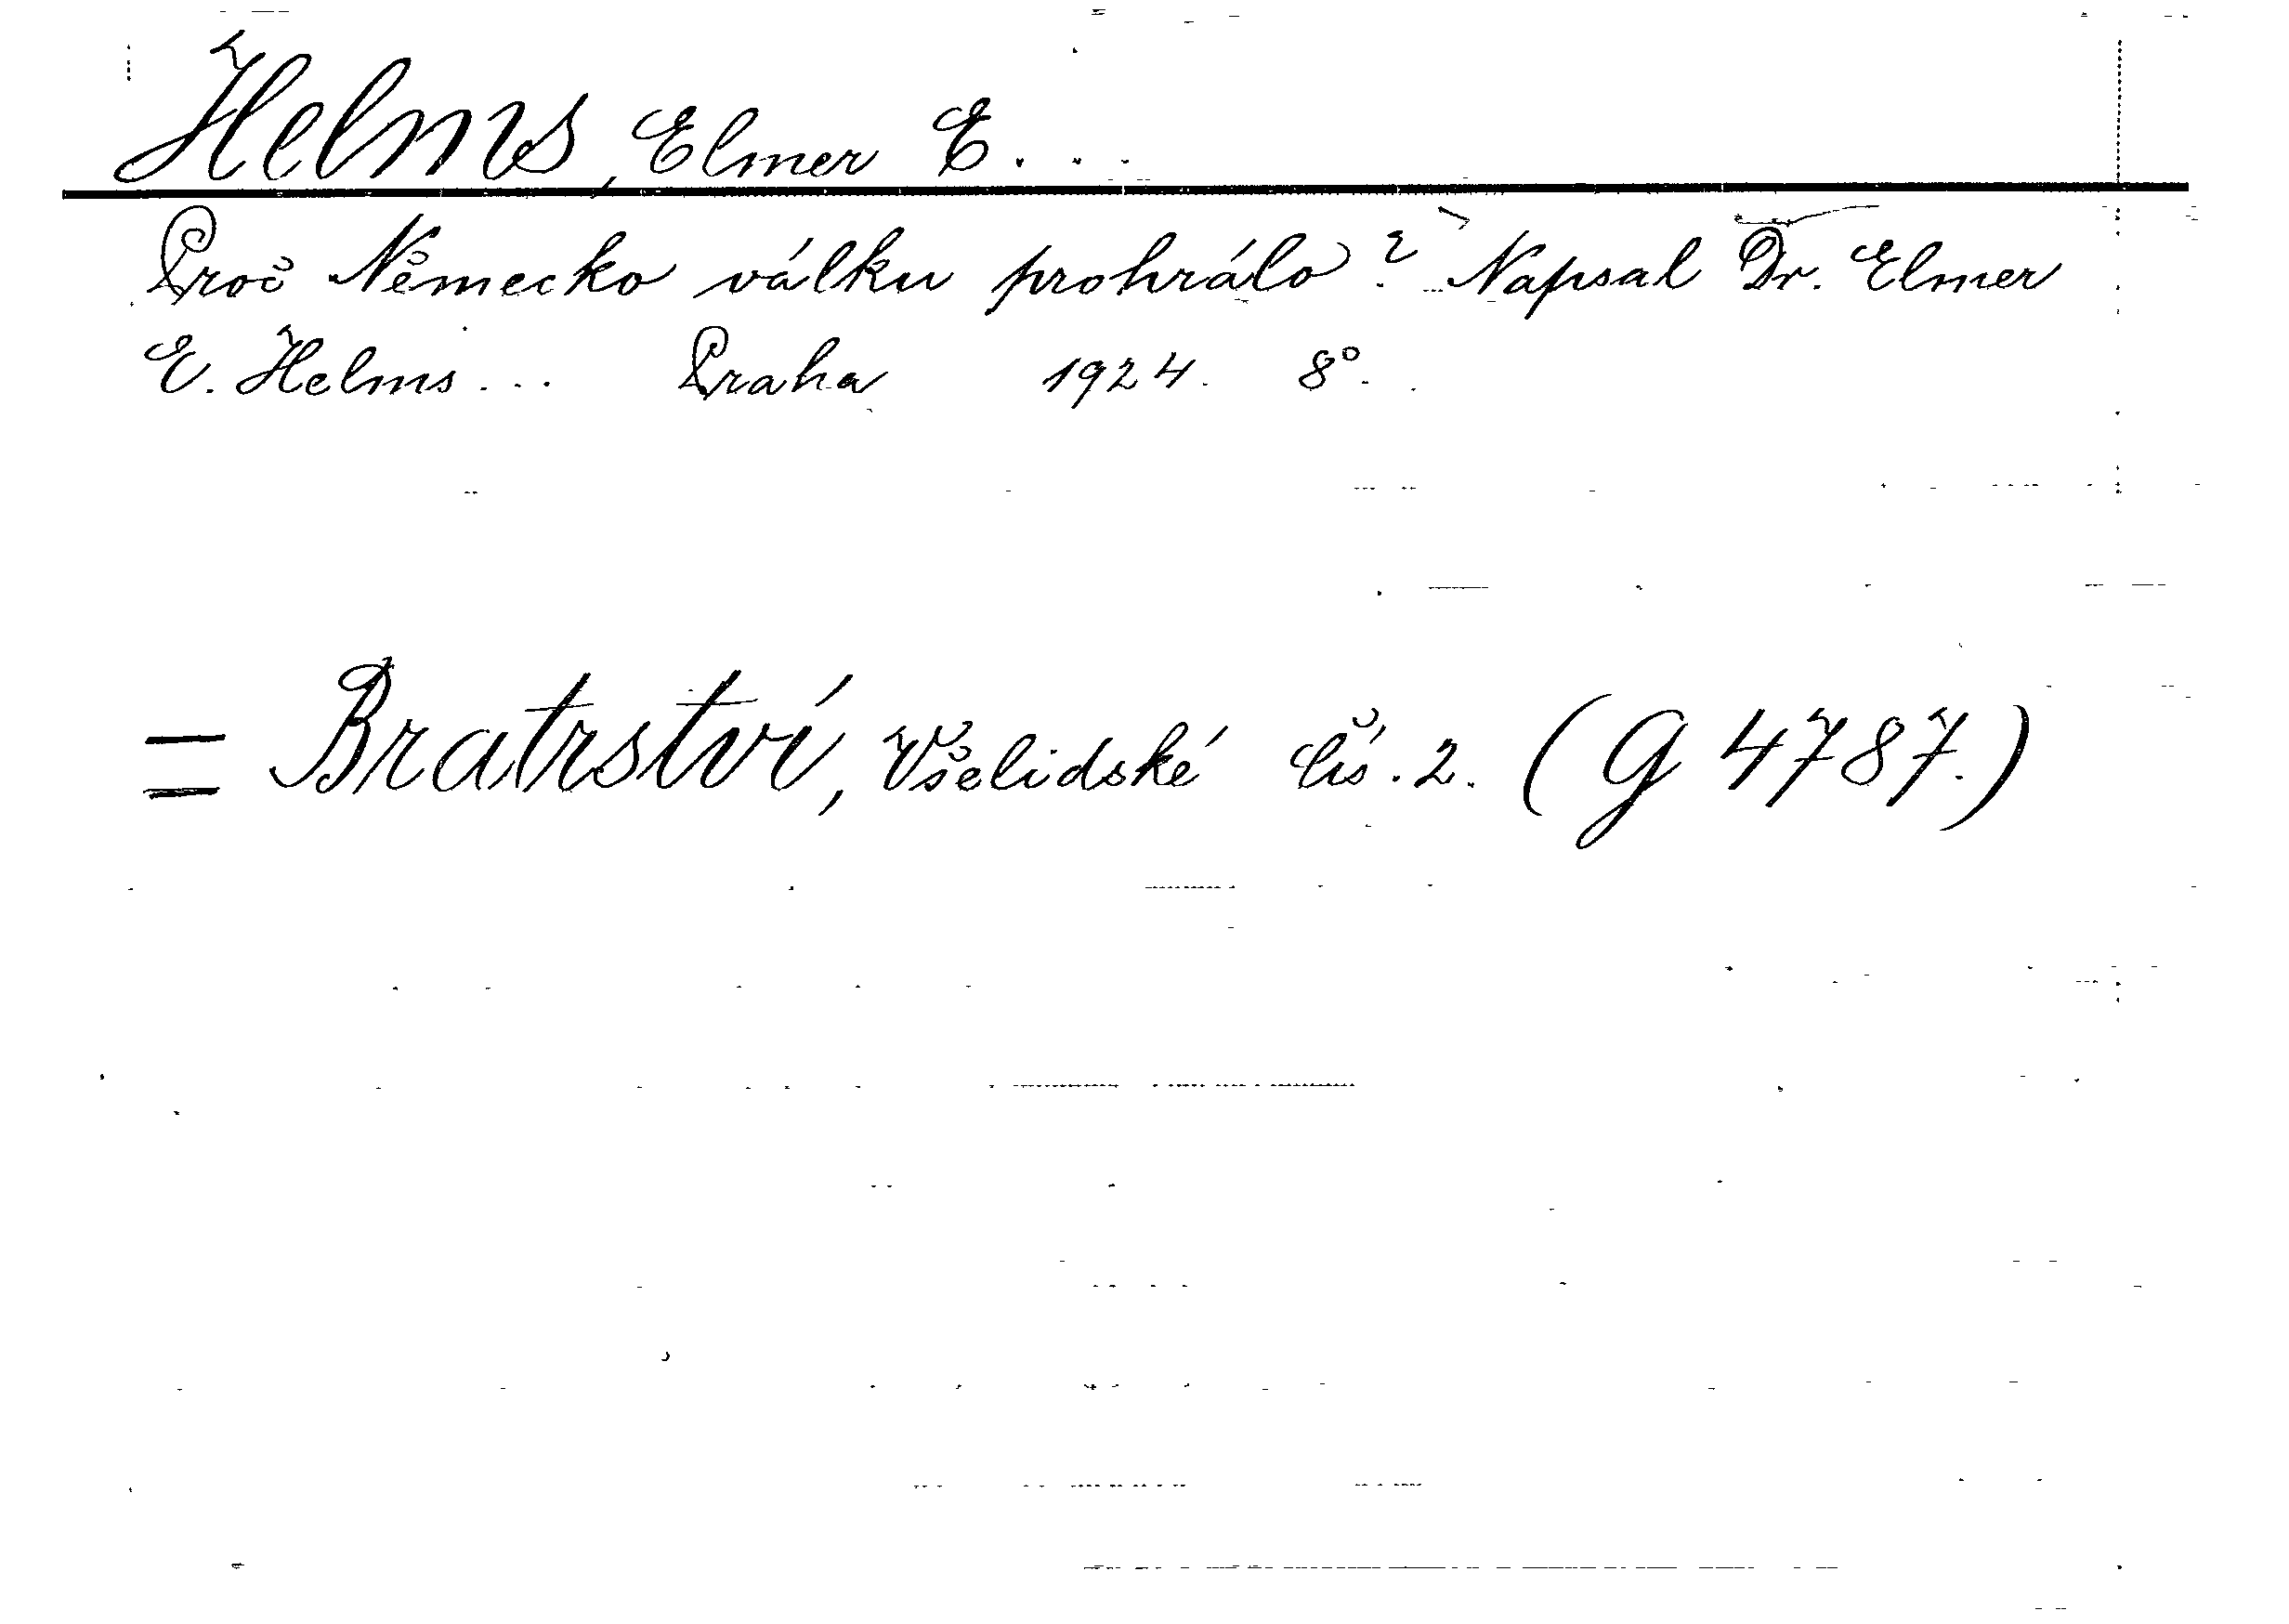 Helms, Elmer E...
Proč Německo válku prohrálo? Napsal Dr. Elmer
E. Helms... Praha 1924. 8°.
= Bratrství, Všelidské čís. 2. (G 4787.)